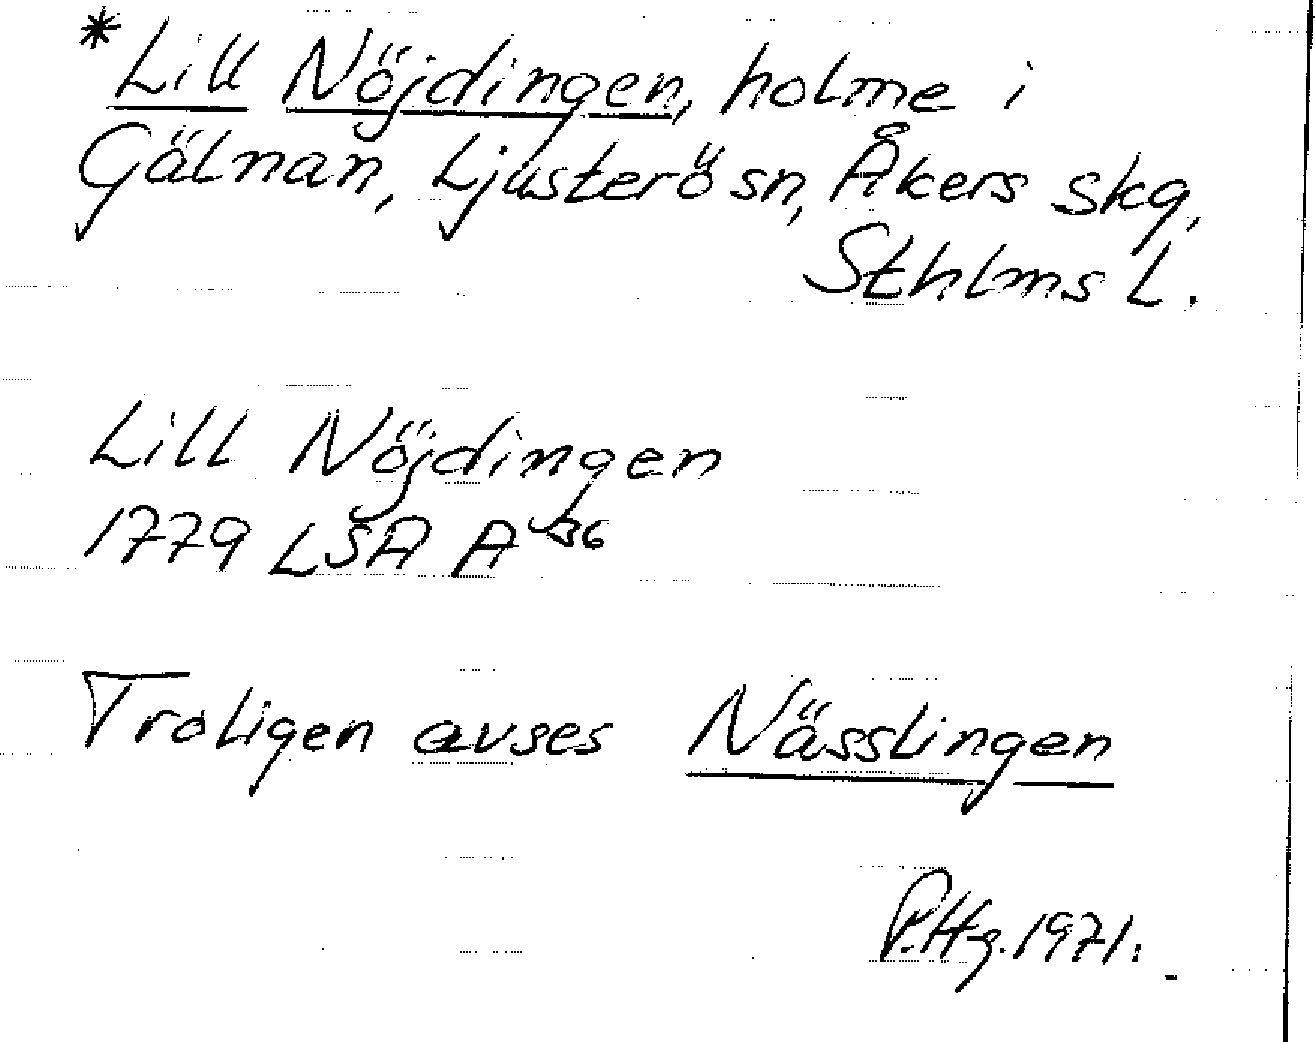 *Lill Nöjdingen, holme i
Gälnan, Ljusterö sn, Åkers skg,
Sthlms L.
Lill Nöjdingen
1779 LSA A 36
Troligen avses Nässlingen
P.Hg. 1971.